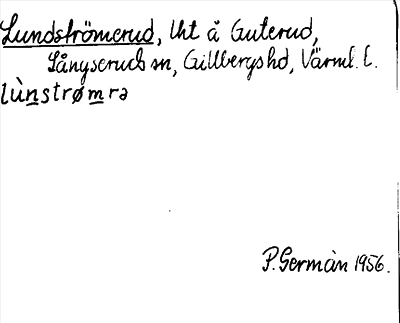 Lundströmerud, lht å Guterud,
Långserud sn, Gillbergs hd, Värml. l.
lùnstrømrə
P. Germàn 1956.